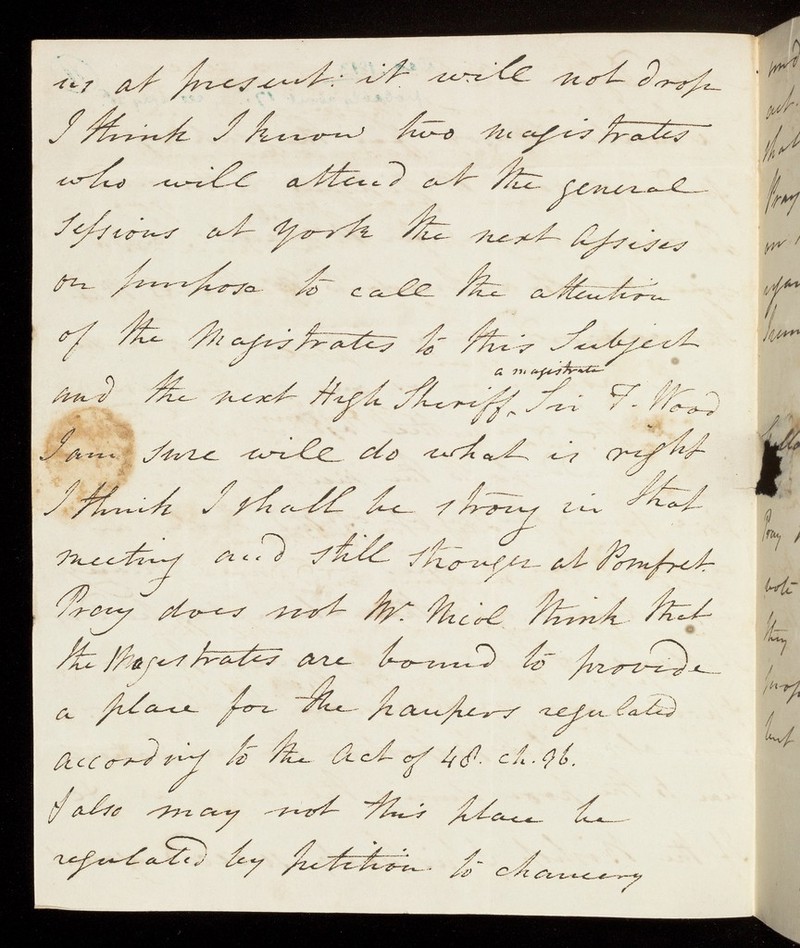 us at present: it will not drop
I think I know two magistrates
who will attend at the general
Sessions at York the next Assises
on purpose to call the attention
of the Magistrates to this Subject
a magistrate
and the next High Sheriff, Sir F. Wood
I am sure will do what is right
I think I shall be strong in that
meeting and still stronger at Pomfret.
Pray does not Mr. Nicol think that
the Magestrates are bound to provide
a place for the paupers regulated
according to the Act of 48. ch. 96.
& also may not this place be
regulated by petition to chancery
and
out
that
Pray
on
Pray
vote
they
but